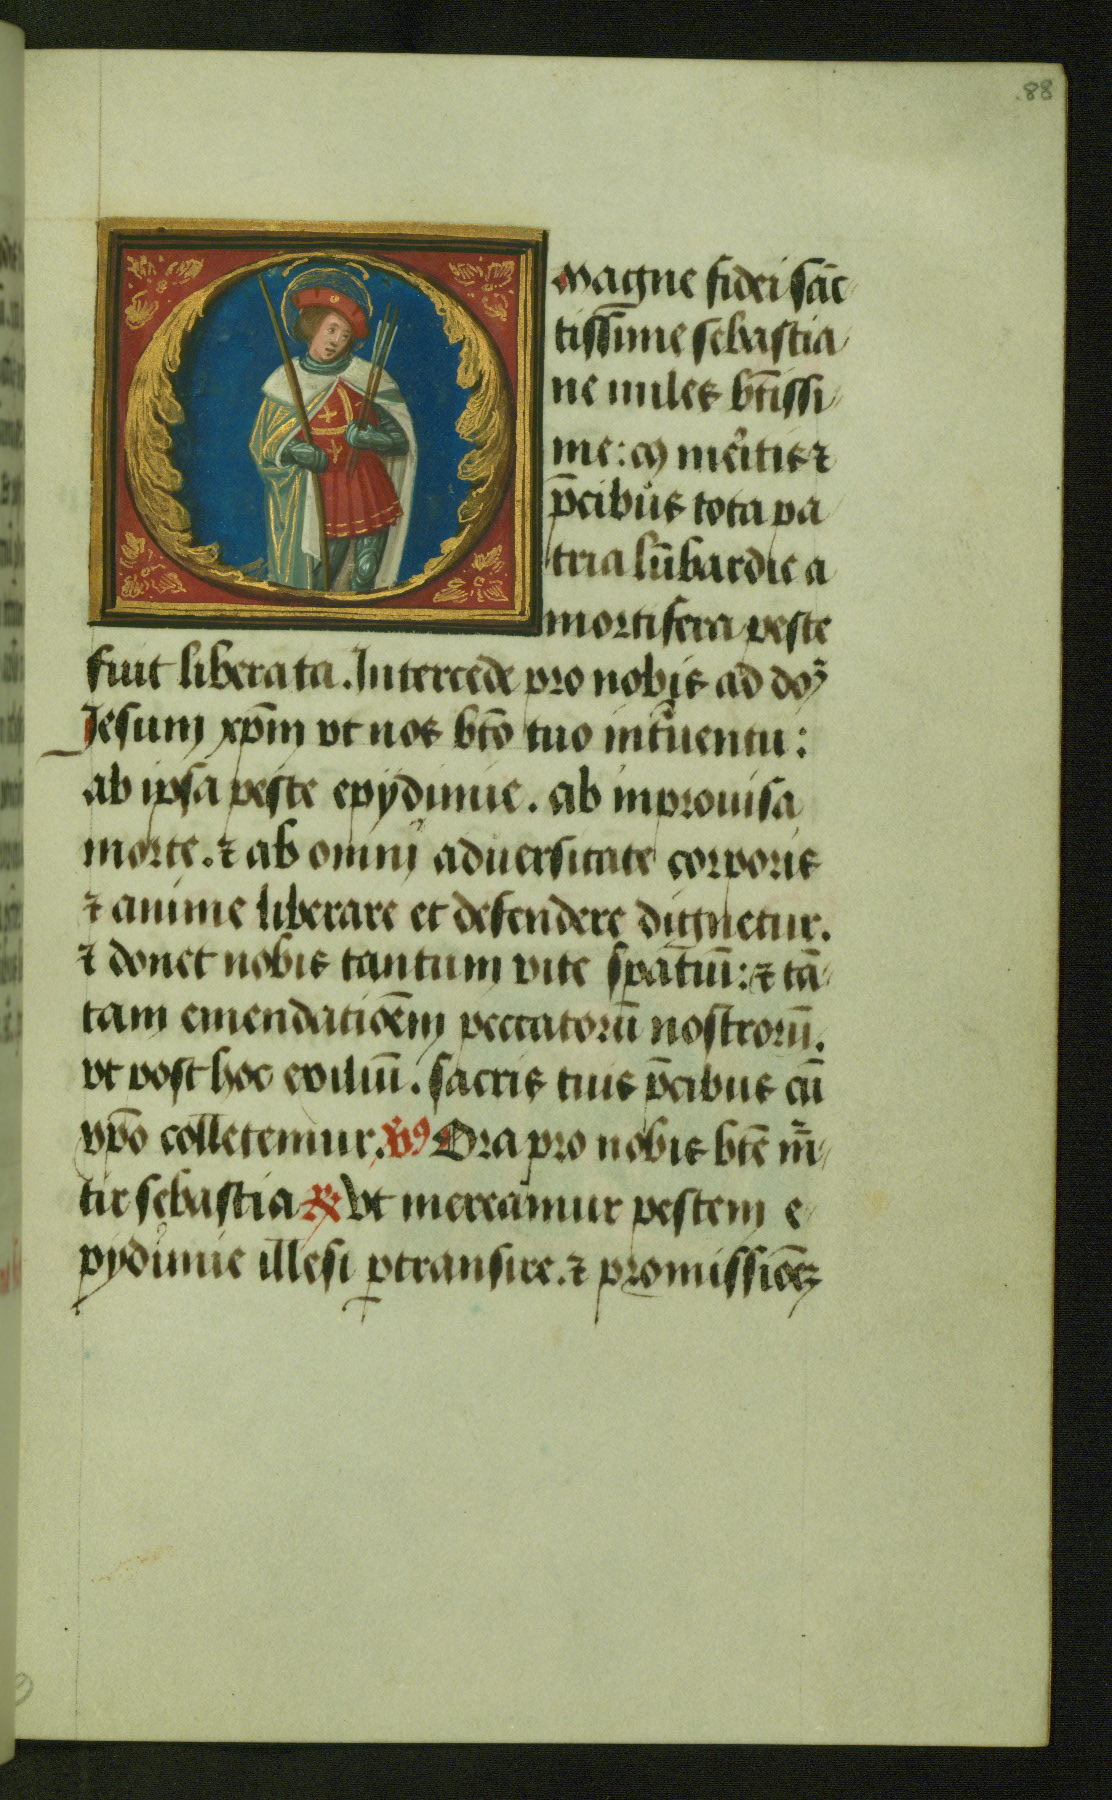 88
O magne fidei sāc
tissime sebastia
ne miles bt̄issi
me: cuius meritis ⁊
p̄cibus tota pa
tria lūbardie a
mortifera peste
fuit liberata. Intercede pro nobis ad dom̄
Jesum xp̄m vt nos bt̄o tuo int̄uentu:
ab ipsa peste epydimie. ab inprouisa
morte. ⁊ ab omni aduersitate corporis
⁊ anime liberare et defendere dignetur.
⁊ donet nobis tantum vite spatiū: ⁊ tā
tam emendatiōem peccatorū nostrorū.
vt post hoc exiliū. sacris tuis p̄cibus cū
xp̄o colletemur. V̷9 Ora pro nobis bt̄e m̄r
tir sebastia R̷ Vt mereamur pestem e
pydimie illesi ꝑtransire. ⁊ promissiōēz